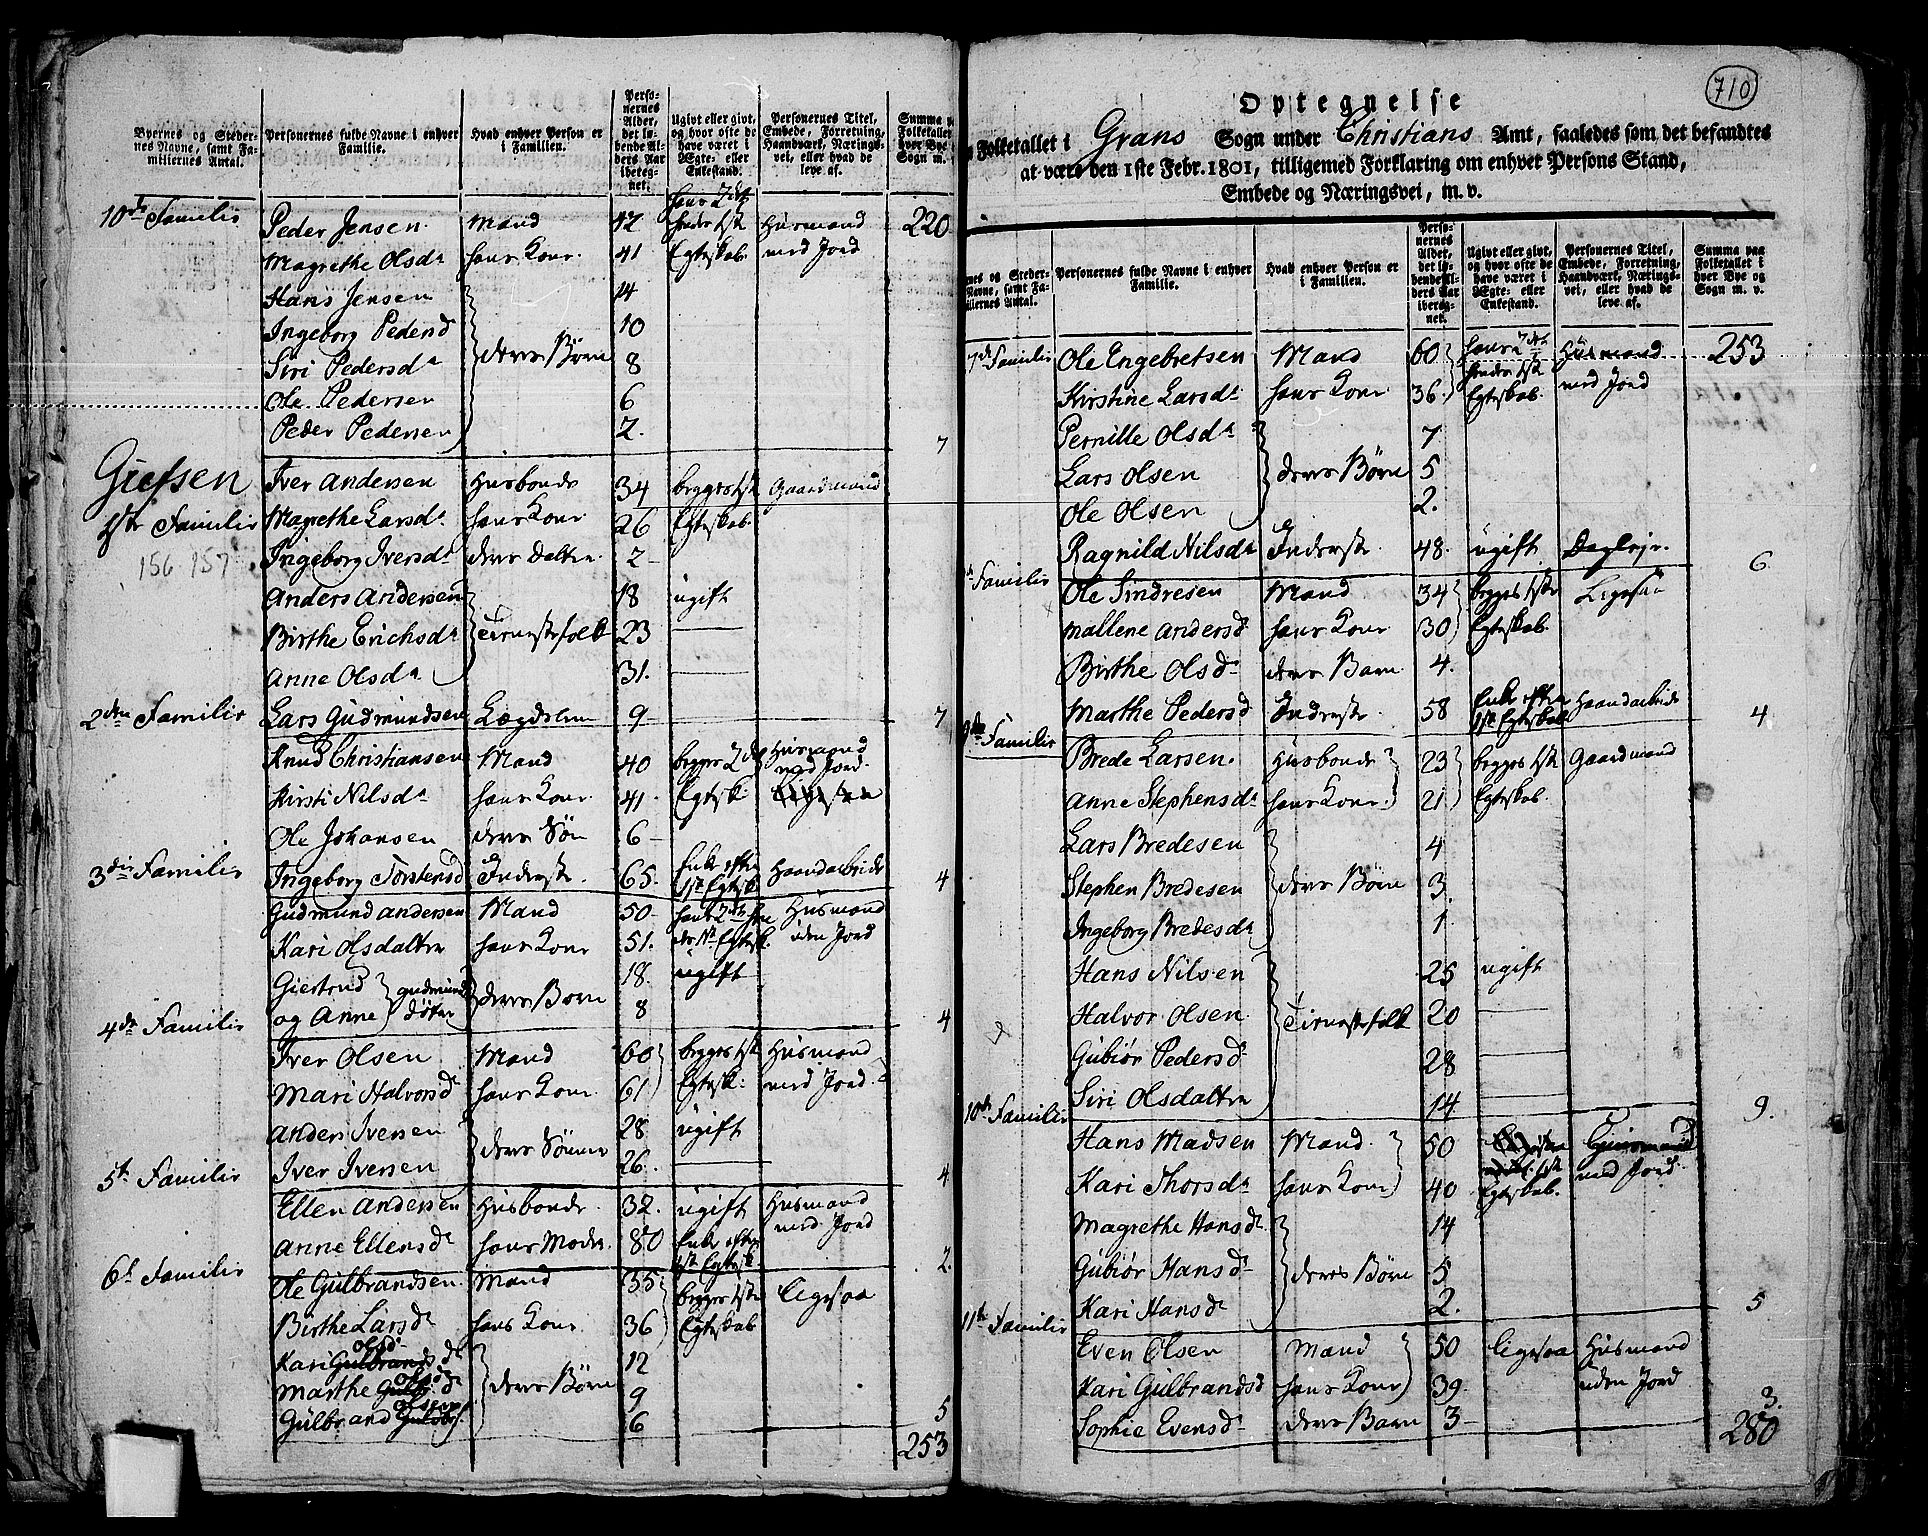 Byernes og Steder-
nes Navne, samt Fa-
miliernes Antal.
Personernes fulde Navne i enhver
Familie.
Hvad enhver Person er
i Familien.
Perso-
nernes
Alder,
det lø-
bende Al-
ders Aar
ibereg-
net.
Ugivt eller givt,
og hvor ofte de
have været i
Ægte- eller
Enkestand.
Personernes Titel,
Embede, Forretning,
Haandværk, Nærings-
vei, eller hvad de
leve af.
Summa
Folketallet
hver Bye
Sogn m.
10de Familie Peder Jensen Mand 42 hans 2det hendes 1ste Huusmand 220
Magrethe Olsdr hans Kone 41 Egteskab med Jord
Hans Jensen 14
Ingeborg Pedersd 10
Siri Pedersdr deres Børn 8
Ole Pedersen 6
Peder Pedersen 2. 7
Giefsen Iver Andersen Husbonde 34 begges 1ste Gaardmand
1ste Familie Magrethe Larsdr hans Kone 26 Egteskab.
156 157 Ingeborg Iversdr deres Datter 2
Anders Andersen 18 ugift
Birthe Erichsdr Tienestefolk 23
Anne Olsdr 31.
2den Familie Lars Gudmundsen Lægdslem 9 7
Knud Christiansen Mand 40 begges 2det Husmand med Jord.
Kirsti Nilsdr hans Kone 41. Egtesk.
Ole Johansen deres Søn 6
3die Familie Ingeborg Torstensd Inderste 65. Enke efter 1ste Egtesk. Haandarbeide 4
Gudmund Andersen Mand 50 hans 2det hen Husmand
Kari Olsdatter hans Kone 51. des 1ste Egtesk. uden Jord
Giertrud Gudmunds 18. ugift
og Anne døtre deres Børn 8
4de Familie 4
Iver Olsen Mand 60 begges 1ste Husmand
Mari Halvorsdr hans Kone 61 Egtesk: med Jord
Anders Iversen 28 ugift
Iver Iversen deres Sønner 26.
5te Familie 4
Ellen Andersen Husbonde 32. ugift Husmand
Anne Ellensdr hans Moder 80 Enke efter 1ste Egtesk. med Jord
6te Familie 2.
Ole Gulbrandsen Mand 35 begges 1ste Ligesaa
Birthe Larsdr hans Kone 36 Egteskab
Kari Gulbrandsdr Olsd 12
Marthe Gulb. dr Olsd deres Børn 9
Gulbrand Gulbr. Olsen 6 5
253
710
Optegnelse
Folketallet i Grans Sogn under Christians Amt, saaledes som det befandtes
at være den 1ste Febr. 1801, tilligemed Forklaring om enhver Persons Stand,
Embede og Næringsvei, m. v.
nes og Steder-
Navne, samt Fa-
iliernes Antal.
Personernes fulde Navne i enhver
Familie.
Hvad enhver Person er
i Familien.
Perso-
nernes
Alder,
det lø-
bende Al-
ders Aar
ibereg-
net.
Ugivt eller givt,
og hvor ofte de
have været i
Ægte- eller
Enkestand.
Personernes Titel,
Embede, Forretning,
Haandværk, Nærings-
vei, eller hvad de
leve af.
Summa paa
Folketallet i
hver Bye og
Sogn m. v.
7de Familie Ole Engebretsen Mand 60 hans 2det hendes 1ste Husmand 253
Kirstine Larsdr hans Kone 36. Egteskab. med Jord
Pernille Olsdr 7
Lars Olsen deres Børn 5
Ole Olsen 2.
Ragnild Nilsdr Inderste 48. ugift Dagleje. 6
Familie Ole Sindresen Mand 34 begges 1ste Ligesaa
Mallene Andersd hans Kone 30 Egteskab.
Birthe Olsdr deres Barn 4.
Marthe Pedersd Inderste 58 Enke efter 1ste Egteskab Haandarbeide 4
9de Familie
Brede Larsen. Husbonde 23 begges 1ste Gaardmand
Anne Stephensdr hans Kone 21 Egteskab.
Lars Bredesen 4
Stephen Bredesen deres Børn 3
Ingeborg Bredesdr 1
Hans Nilsen 25 ugift
Halvor Olsen Tienestefolk 20
Gubiør Pedersdr 28
Siri Olsdatter 14
10de Familie 9.
Hans Madsen Mand 50 1ste
Kari Thorsdr hans Kone 40 Egteskab. med Jord
Magrethe Hansdr 14
Gubiør Hansdr deres Børn 5
Kari Hansdr 2. 5
11te Familie
Even Olsen Mand 50 ligesaa Husmand
Kari Gulbrandsd hans Kone 39. uden Jord
Sophie Evensdr deres Barn 3 3.
280